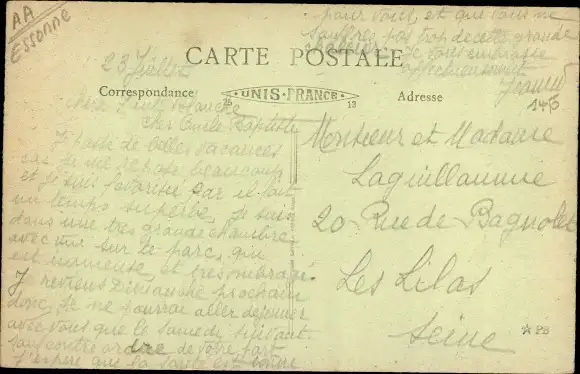 AA
Essonne
CARTE POSTALE
Correspondance
UNIS-FRANCE
Adresse
23 Juillet
Chère Tante Blanche
cher Oncle Baptiste
Je passe de belles vacances
car je me repose beaucoup
et je suis favorisée car il fait
un temps superbe. Je suis
dans une très grande chambre
avec vue sur le parc, qui
est immense et très ombragé.
Je reviens Dimanche prochain
donc je ne pourrai aller déjeuner
avec vous que le samedi suivant
sauf contre ordre de votre part
J'espère que la santé est bonne
pour vous, et que vous ne
souffrez pas trop de cette grande
chaleur. Je vous embrasse
affectueusement
Monsieur et Madame
Laguillaumie
20 Rue de Bagnolet
Les Lilas
Seine